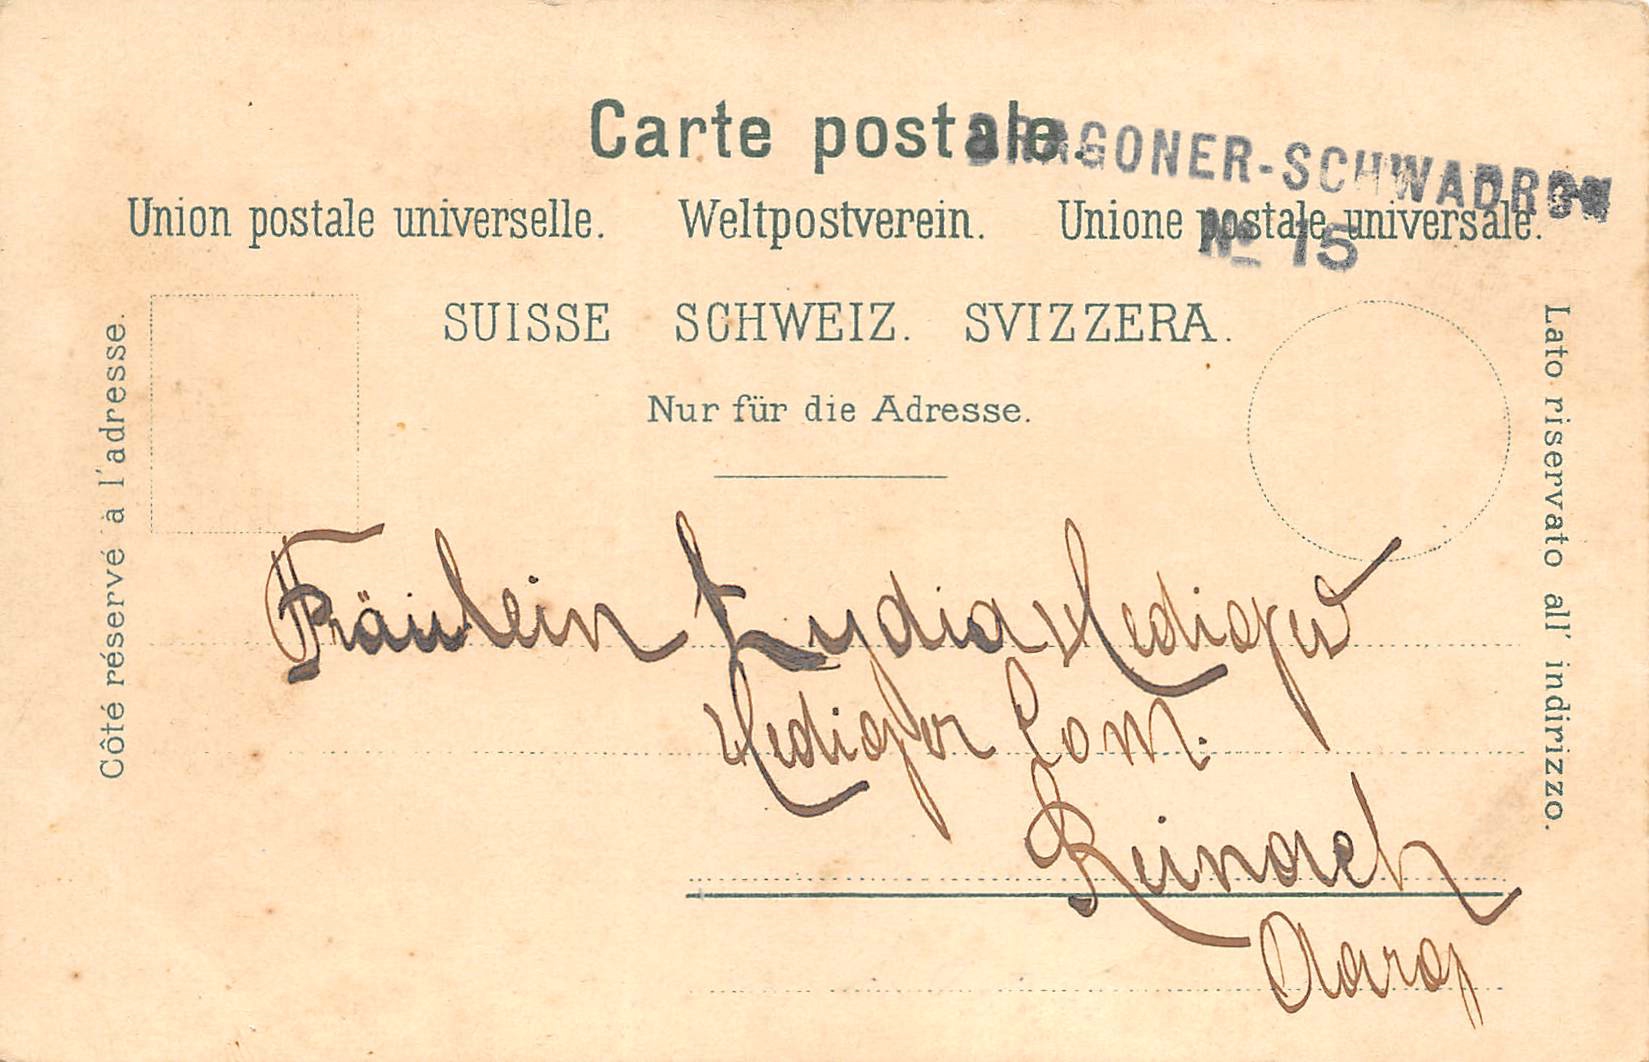 Carte postale.
DRAGONER-SCHWADRON
No 15
Union postale universelle. Weltpostverein. Unione postale universale.
SUISSE SCHWEIZ. SVIZZERA.
Nur für die Adresse.
Côté réservé à l'adresse.
Lato riservato all' indirizzo.
Fräulein Lydia Hediger
Hediger Com.
Reinach
Aarg